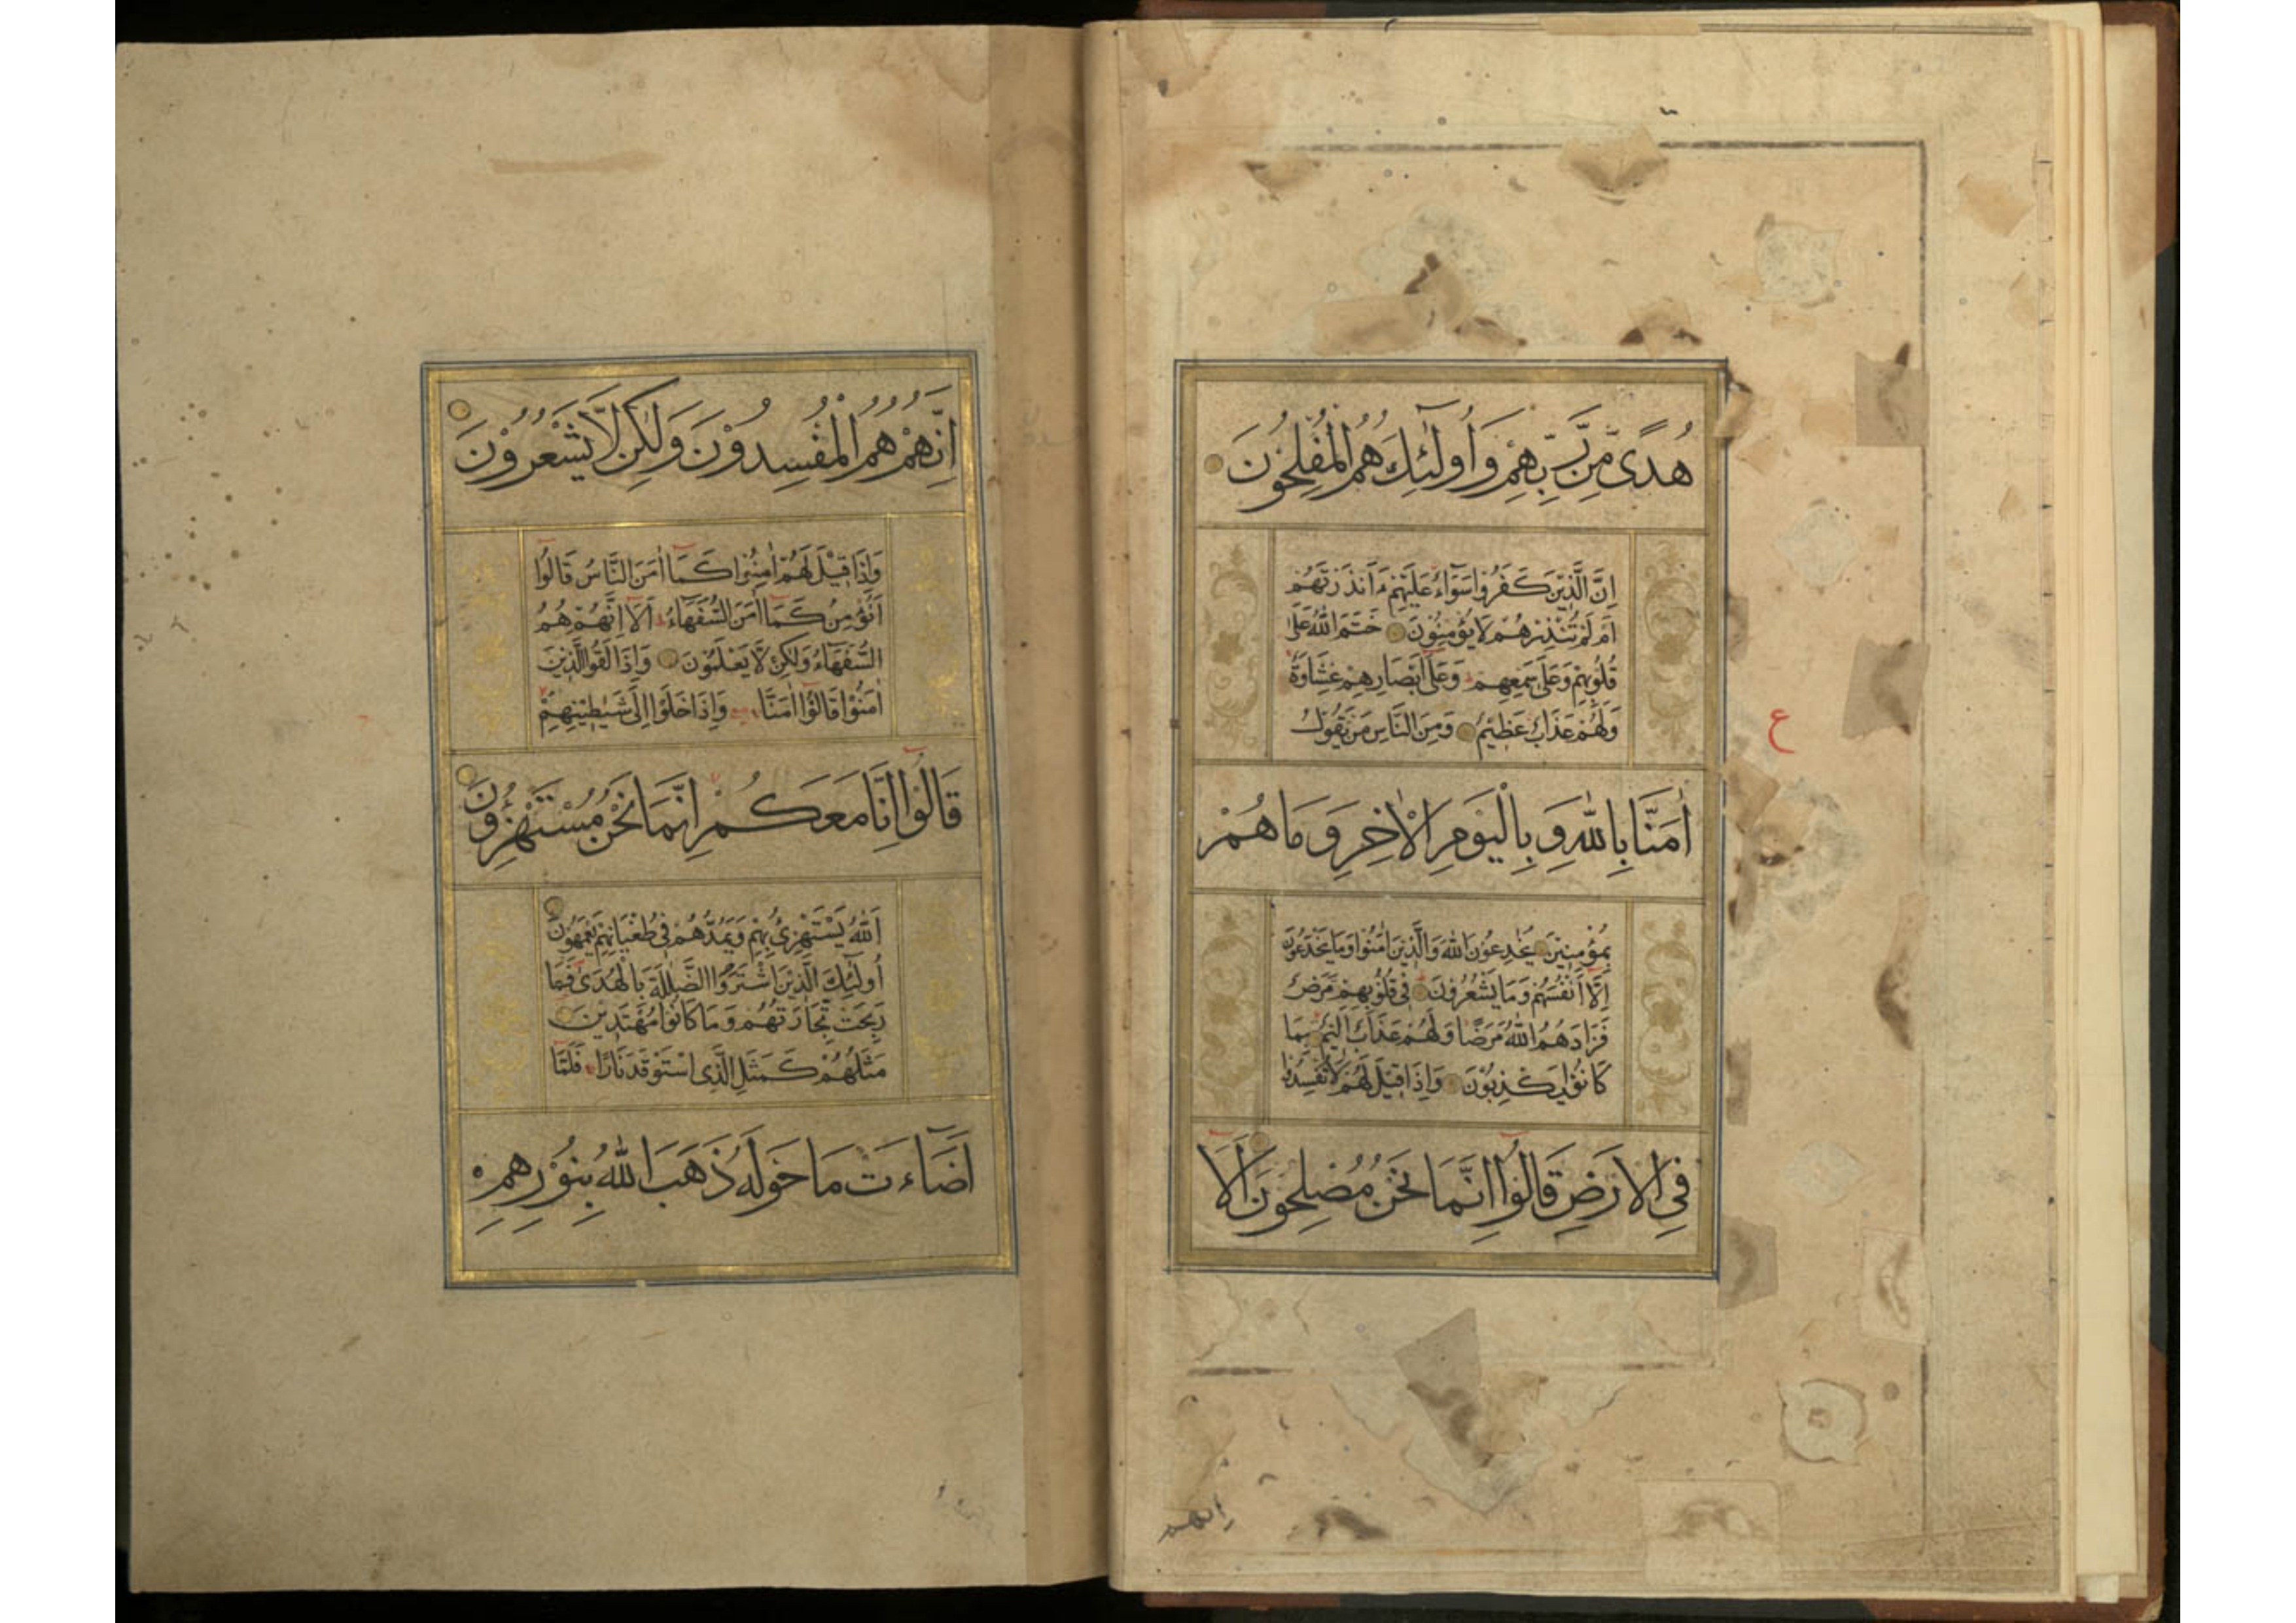 هُدًى مِّن رَّبِّهِمْ وَأُولَٰئِكَ هُمُ الْمُفْلِحُونَ
اِنَّ الَّذِيْنَ كَفَرُوا سَوَآءٌ عَلَيْهِمْ ءَاَنْذَرْتَهُمْ
اَمْ لَمْ تُنْذِرْهُمْ لَا يُؤْمِنُوْنَ خَتَمَ اللّٰهُ عَلٰى
قُلُوْبِهِمْ وَعَلٰى سَمْعِهِمْ ط وَعَلٰٓى اَبْصَارِهِمْ غِشَاوَةٌ
وَلَهُمْ عَذَابٌ عَظِيْمٌ وَمِنَ النَّاسِ مَنْ يَقُوْلُ
ع
اٰمَنَّا بِاللّٰهِ وَ بِالْيَوْمِ الْاٰخِرِ وَ مَا هُمْ
بِمُؤْمِنِيْنَ يُخٰدِعُوْنَ اللّٰهَ وَالَّذِيْنَ اٰمَنُوْا وَمَا يَخْدَعُوْنَ
اِلَّآ اَنْفُسَهُمْ وَمَا يَشْعُرُوْنَ فِىْ قُلُوْبِهِمْ مَرَضٌ
فَزَادَهُمُ اللّٰهُ مَرَضًا وَلَهُمْ عَذَابٌ اَلِيْمٌ بِمَا
كَانُوْا يَكْذِبُوْنَ وَاِذَا قِيْلَ لَهُمْ لَا تُفْسِدُوْا
فِى الْاَرْضِ قَالُوْٓا اِنَّمَا نَحْنُ مُصْلِحُوْنَ اَلَآ
انهم
اِنَّهُمْ هُمُ الْمُفْسِدُوْنَ وَلٰكِنْ لَّا يَشْعُرُوْنَ
وَاِذَا قِيْلَ لَهُمْ اٰمِنُوْا كَمَآ اٰمَنَ النَّاسُ قَالُوْٓا
اَنُؤْمِنُ كَمَآ اٰمَنَ السُّفَهَآءُ ط اَلَآ اِنَّهُمْ هُمُ
السُّفَهَآءُ وَلٰكِنْ لَّا يَعْلَمُوْنَ وَاِذَا لَقُوا الَّذِيْنَ
اٰمَنُوْا قَالُوْٓا اٰمَنَّا وَاِذَا خَلَوْا اِلٰى شَيٰطِيْنِهِمْ
قَالُوْٓا اِنَّا مَعَكُمْ اِنَّمَا نَحْنُ مُسْتَهْزِءُوْنَ
اَللّٰهُ يَسْتَهْزِئُ بِهِمْ وَيَمُدُّهُمْ فِى طُغْيَانِهِمْ يَعْمَهُوْنَ
اُولٰٓئِكَ الَّذِيْنَ اشْتَرَوُا الضَّلٰلَةَ بِالْهُدٰى فَمَا
رَبِحَتْ تِجَارَتُهُمْ وَمَا كَانُوْا مُهْتَدِيْنَ
مَثَلُهُمْ كَمَثَلِ الَّذِى اسْتَوْقَدَ نَارًا فَلَمَّآ
اَضَآءَتْ مَا حَوْلَهٗ ذَهَبَ اللّٰهُ بِنُوْرِهِمْ